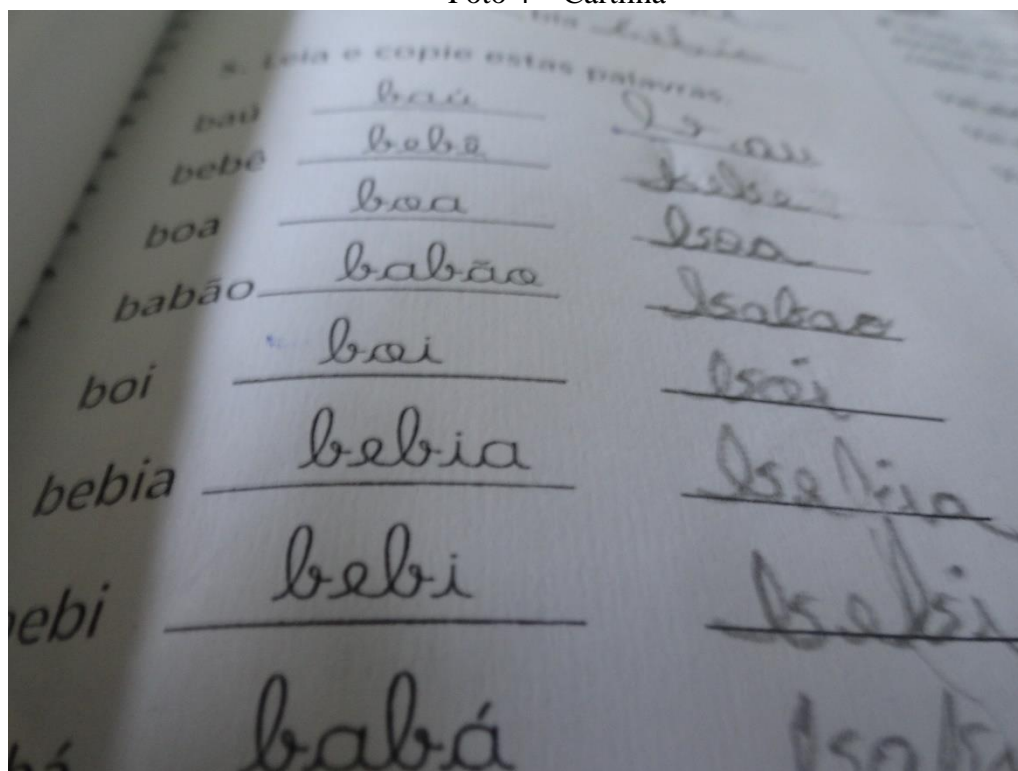 Foto 4 – Cartilha
s. Leia e copie estas palavras.
baú baú
bebê bebê
boa boa
babão babão babao
boi boi boi
bebia bebia bebia
bebi bebi
babá